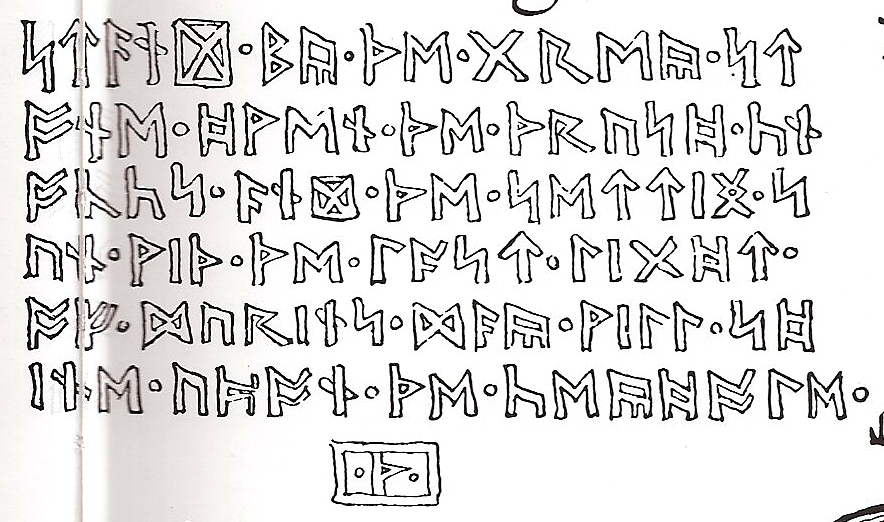 ᛋᛏᚫᚾᛞ᛫ᛒᚣ᛫ᚦᛖ᛫ᚷᚱᛖᚣ᛫ᛋᛏ
ᚩᚾᛖ᛫ᚻᚹᛖᚾ᛫ᚦᛖ᛫ᚦᚱᚢᛋᚻ᛫ᛱᚾ
ᚩᚳᛱᛋ᛫ᚫᚾᛞ᛫ᚦᛖ᛫ᛋᛖᛏᛏᛁᛝ᛫ᛋ
ᚢᚾ᛫ᚹᛁᚦ᛫ᚦᛖ᛫ᛚᚫᛋᛏ᛫ᛚᛁᚷᚻᛏ᛫
ᚩᚠ᛫ᛞᚢᚱᛁᚾᛋ᛫ᛞᚫᚣ᛫ᚹᛁᛚᛚ᛫ᛋᚻ
ᛁᚾᛖ᛫ᚢᛈᚩᚾ᛫ᚦᛖ᛫ᛱᛖᚣᚻᚩᛚᛖ᛫
᛫ᚦ᛫